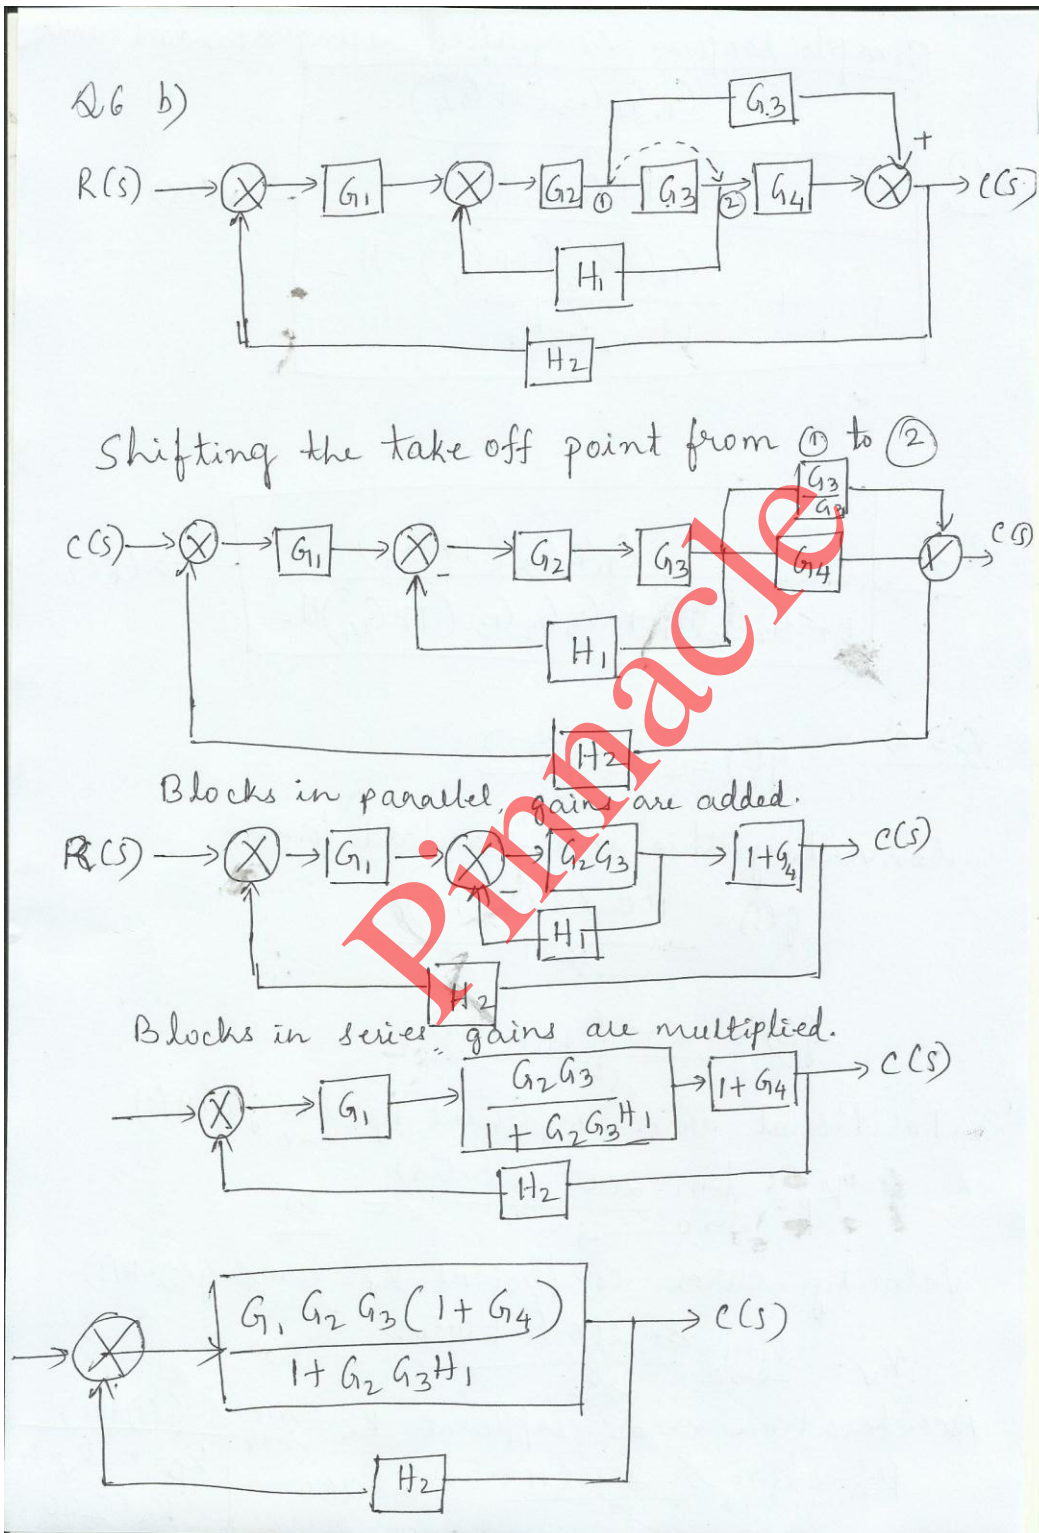 Q6 b)
G3
+
R(s) G1 G2 ① G3 ② G4 C(s)
H1
H2
Shifting the take off point from ① to ②
G3
G3
C(s) G1 G2 G3 G4 C(s)
-
H1
H2
Blocks in parallel, gains are added.
R(s) G1 G2G3 1+G4 C(s)
-
H1
H2
Blocks in series, gains are multiplied.
G1 G2G3 1+G4 C(s)
1+G2G3H1
H2
G1 G2 G3(1+G4) C(s)
1+G2 G3H1
H2
Pinnacle